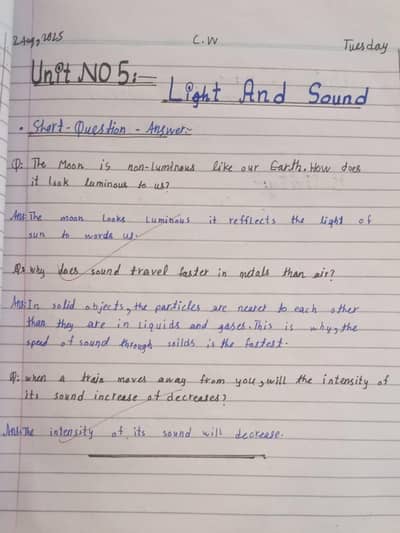 2 Aug, 2025 C.W Tuesday
Unit NO 5:-
Light And Sound
• Short-Question-Answer:-
Q: The Moon is non-luminous like our Earth. How does
it look luminous to us?
Ans: The moon looks Luminous it refflects the light of
sun to words us.
Q: why does sound travel faster in metals than air?
Ans: In solid objects, the particles are nearer to each other
than they are in liquids and gases. This is why, the
speed of sound through soilds is the fastest.
Q: when a train moves away from you, will the intensity of
its sound increase of decreases?
Ans: The intensity of its sound will decrease.